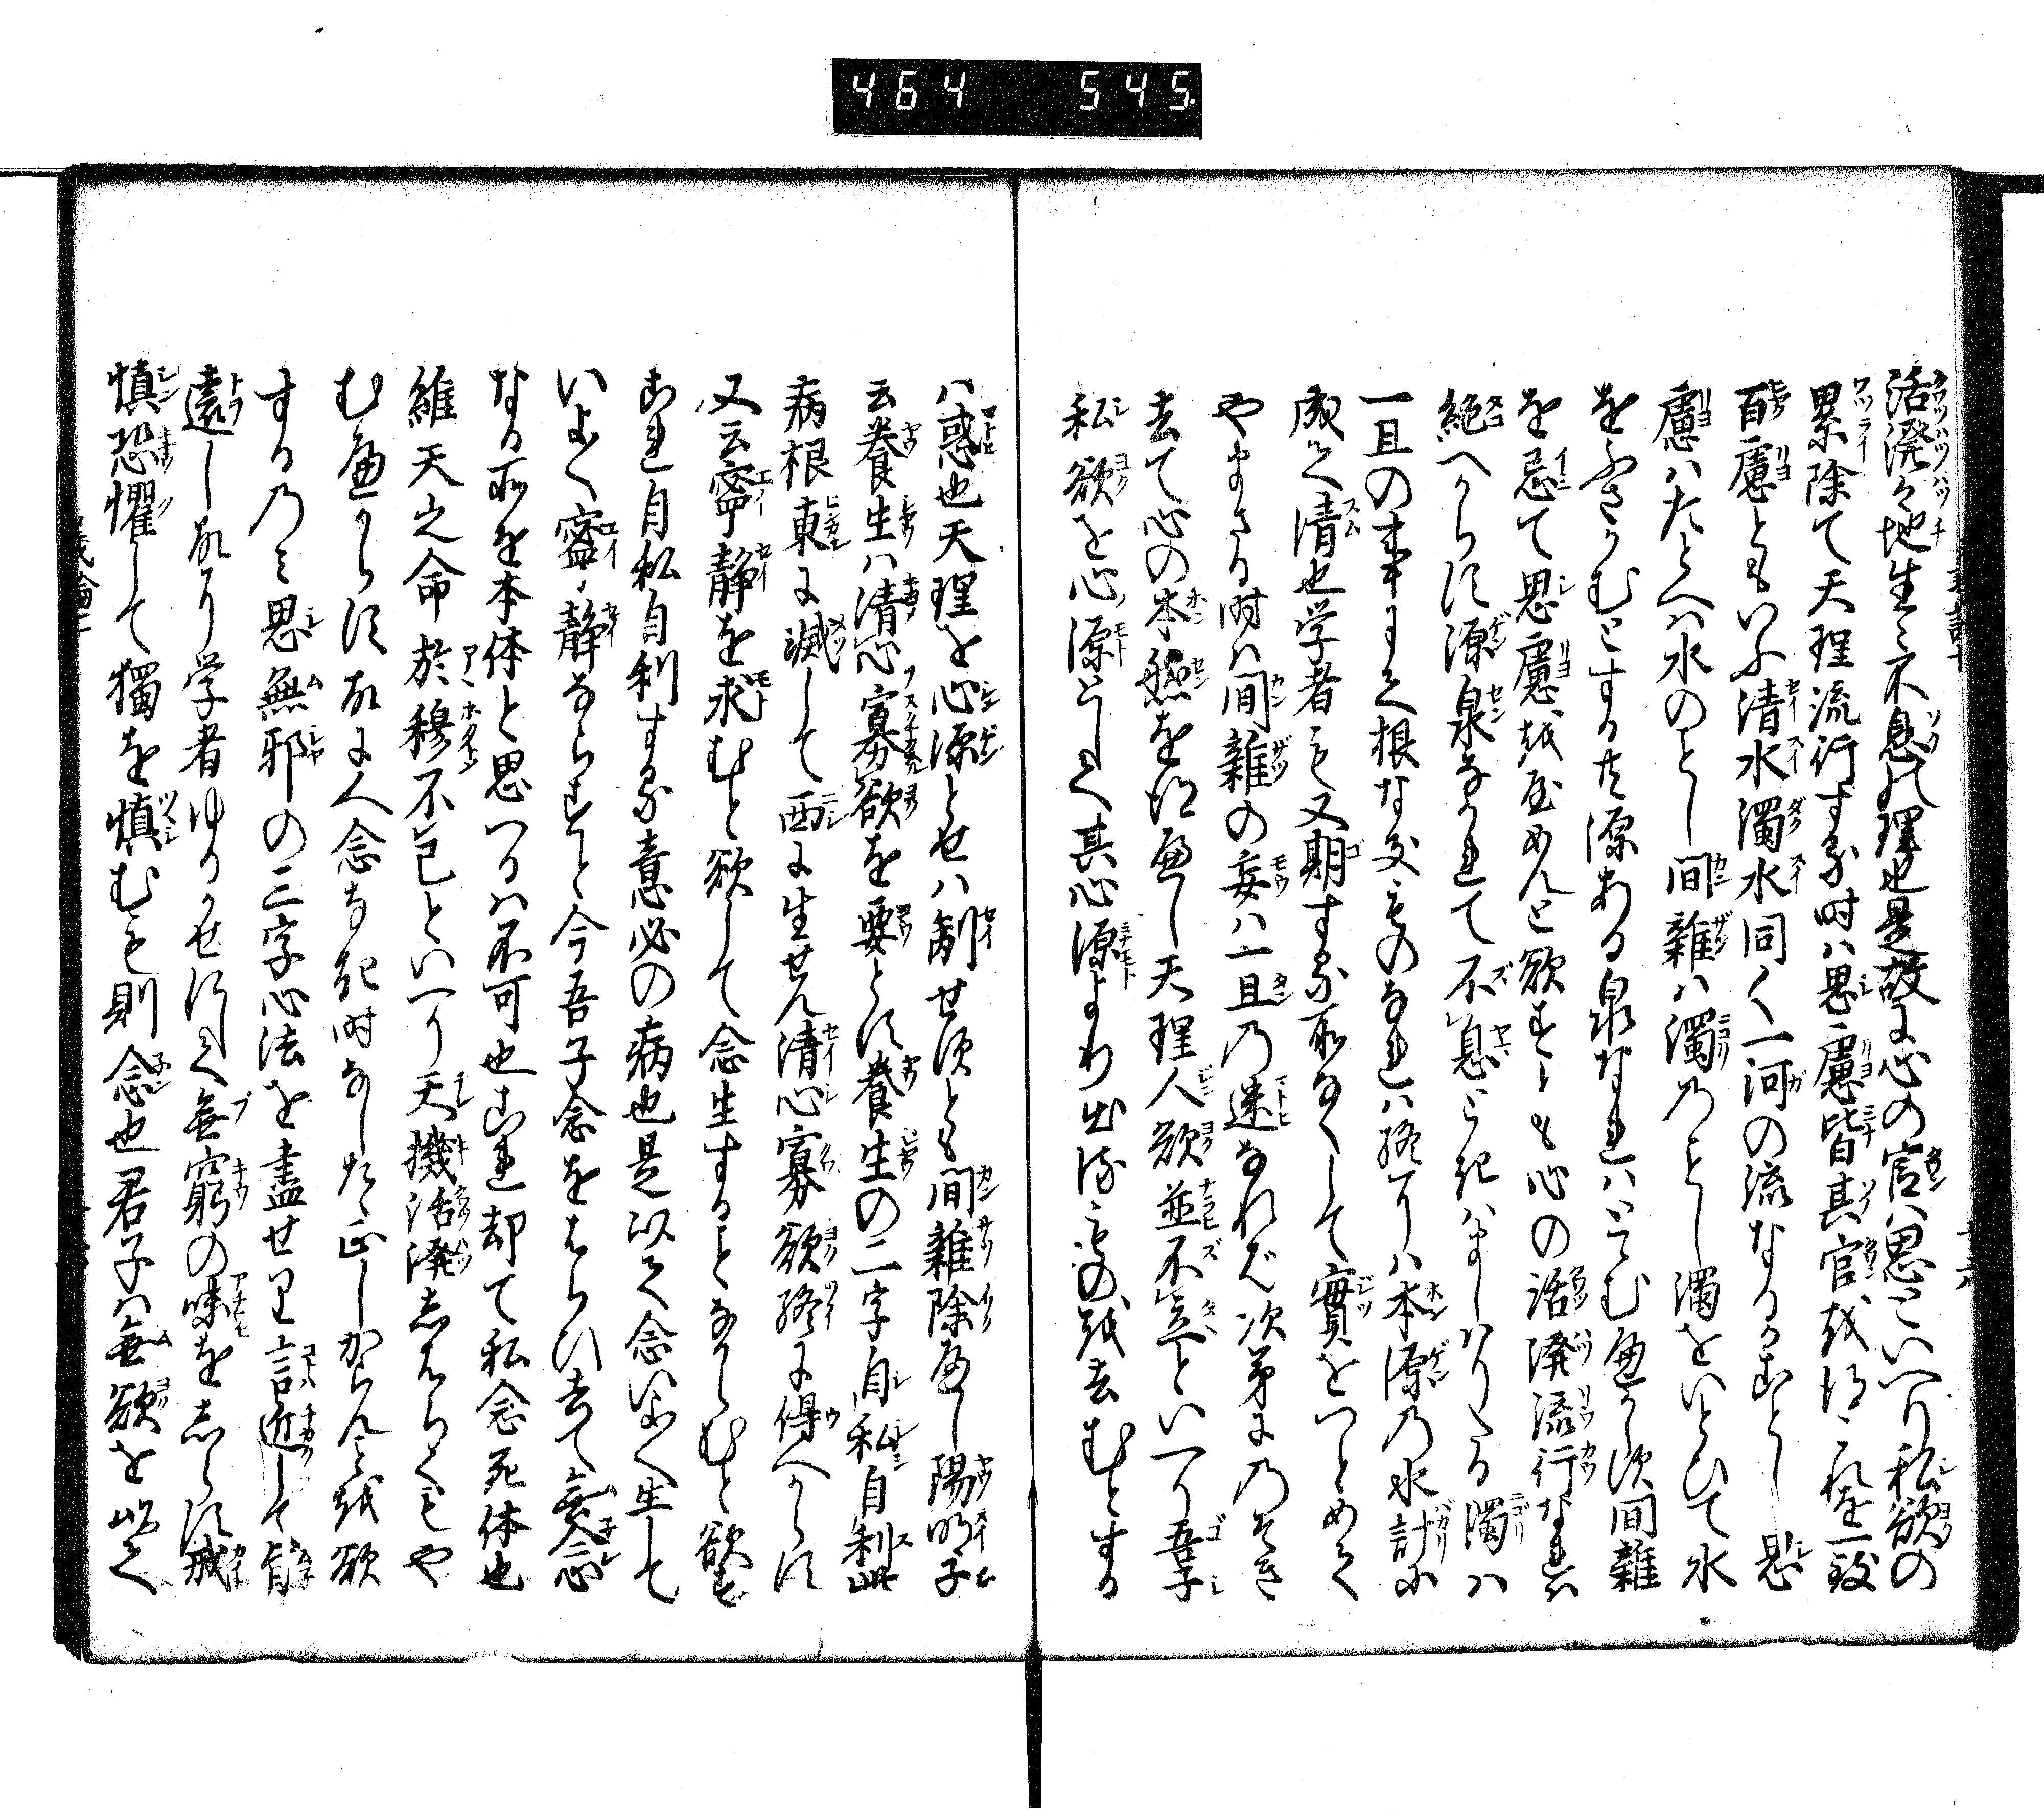 464 545.
活溌々地生々不息の理也是故に心の官ハ思といへり私欲の
累除て天理流行する時ハ思慮皆其官を得これを一致
百慮ともいふ清水濁水同く一河の流なるかことし思
慮ハたとへハ水のことし間雑ハ濁のことし濁をいとひて水
をふさかむとするとも源ある泉なれハとゝむへからす間雑
を忌て思慮を屋めんと欲すとも心の活溌流行なれハ
絶へからす源泉なかれて不息ときハましハりたる濁ハ
一旦の事にして根なきものなれハ終にハ本源の水計に
成て清也学者も又期する所なくして實をつとめて
やまさる時ハ間雑の妄ハ一旦の迷なれバ次第にのそき
去て心の本然を得へし天理人欲並不立といへり吾子
私欲を心源として其心源より出るものを去むとする
ハ惑也天理を心源とせハ制せすとも間雑除へし陽明子
云養生ハ清心寡欲を要とす養生の二字自私自利此
病根東に滅して西に生せん清心寡欲終に得へからす
又云寧静を求むと欲して念生することなからむと欲す
これ自私自利する意必の病也是以て念いよく生して
いよく寧静ならすと今吾子念をはらひ去て無念
なる所を本体と思へるハ不可也これ却て私念死体也
維天之命於穆不已といへり天機活溌しはらくもや
む へからす故に人念なき時なしたゝ正しからんを欲
するのミ思無邪の三字心法を盡せり言近して旨
遠し故に学者ゆるかせにして無窮の味をしらす戒
慎恐懼して獨を慎むも則念也君子ハ無欲を以て